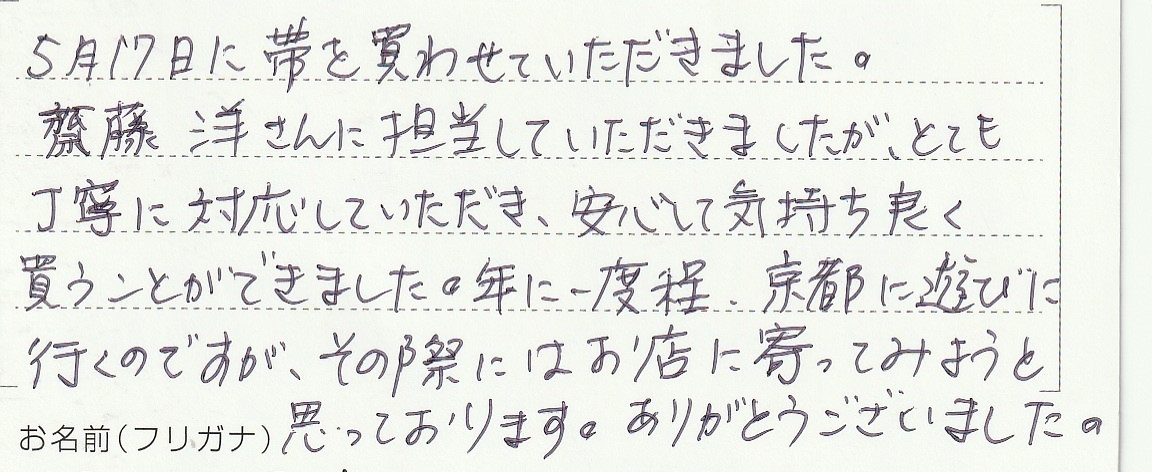 5月17日に帯を買わせていただきました。
齋藤 洋さんに担当していただきましたが、とても
丁寧に対応していただき、安心して気持ち良く
買うことができました。年に一度程、京都に遊びに
行くのですが、その際にはお店に寄ってみようと
思っております。ありがとうございました。
お名前(フリガナ)